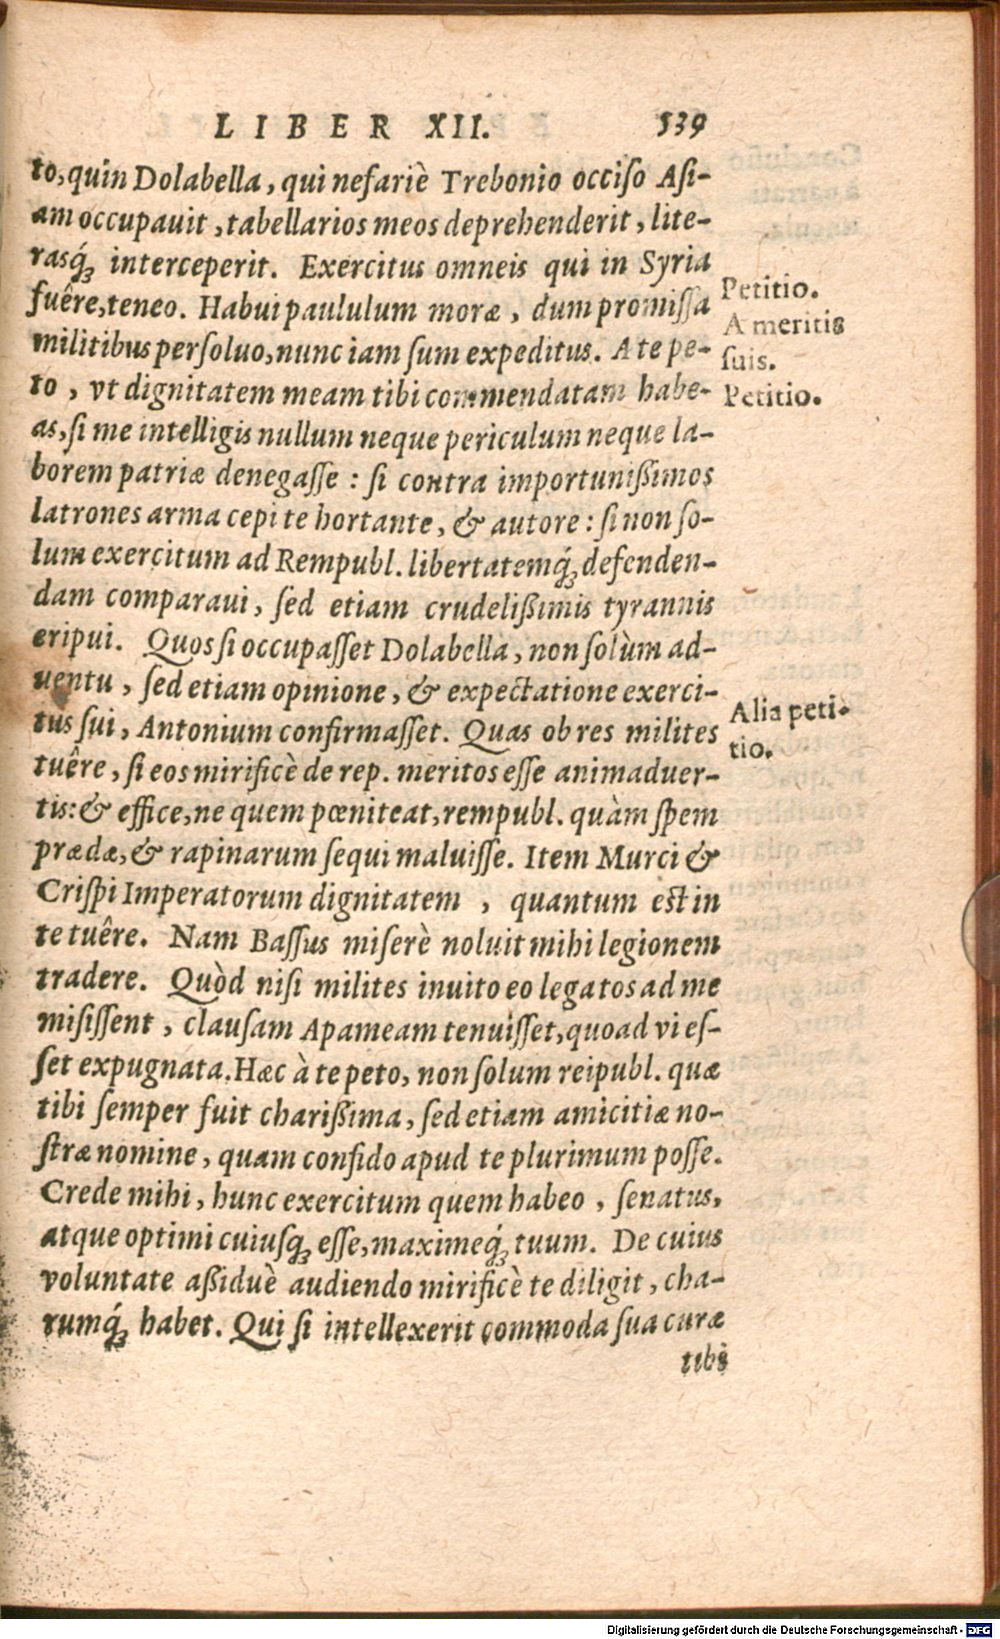 LIBER XII. 539
to, quin Dolabella, qui nefariè Trebonio occiſo Aſi-
am occupauit, tabellarios meos deprehenderit, lite-
rasq́ꝫ interceperit. Exercitus omneis qui in Syria
fuêre, teneo. Habui paululum moræ, dum promiſſa
militibus perſoluo, nunc iam ſum expeditus. A te pe-
to, vt dignitatem meam tibi commendatam habe-
as, ſi me intelligis nullum neque periculum neque la-
borem patriæ denegaſſe: ſi contra importunißimos
latrones arma cepi te hortante, & autore: ſi non ſo-
lum exercitum ad Rempubl. libertatemq́ꝫ defenden-
dam comparaui, ſed etiam crudelißimis tyrannis
eripui. Quos ſi occupaſſet Dolabella, non ſolùm ad-
uentu, ſed etiam opinione, & expectatione exerci-
tus ſui, Antonium confirmaſſet. Quas ob res milites
tuêre, ſi eos mirificè de rep. meritos eſſe animaduer-
tis: & effice, ne quem pœniteat, rempubl. quàm ſpem
prædæ, & rapinarum ſequi maluiſſe. Item Murci &
Criſpi Imperatorum dignitatem, quantum eſt in
te tuêre. Nam Baſſus miſerè noluit mihi legionem
tradere. Quòd niſi milites inuito eo legatos ad me
miſiſſent, clauſam Apameam tenuiſſet, quoad vi eſ-
ſet expugnata. Hæc à te peto, non ſolum reipubl. quæ
tibi ſemper fuit charißima, ſed etiam amicitiæ no-
ſtræ nomine, quam confido apud te plurimum poſſe.
Crede mihi, hunc exercitum quem habeo, ſenatus,
atque optimi cuiuſqꝫ eſſe, maximeq́ꝫ tuum. De cuius
voluntate aßiduè audiendo mirificè te diligit, cha-
rumq́ꝫ habet. Qui ſi intellexerit commoda ſua curæ
tibi
Petitio.
A meritis
ſuis.
Petitio.
Alia peti-
tio.
Digitalisierung gefördert durch die Deutsche Forschungsgemeinschaft - DFG